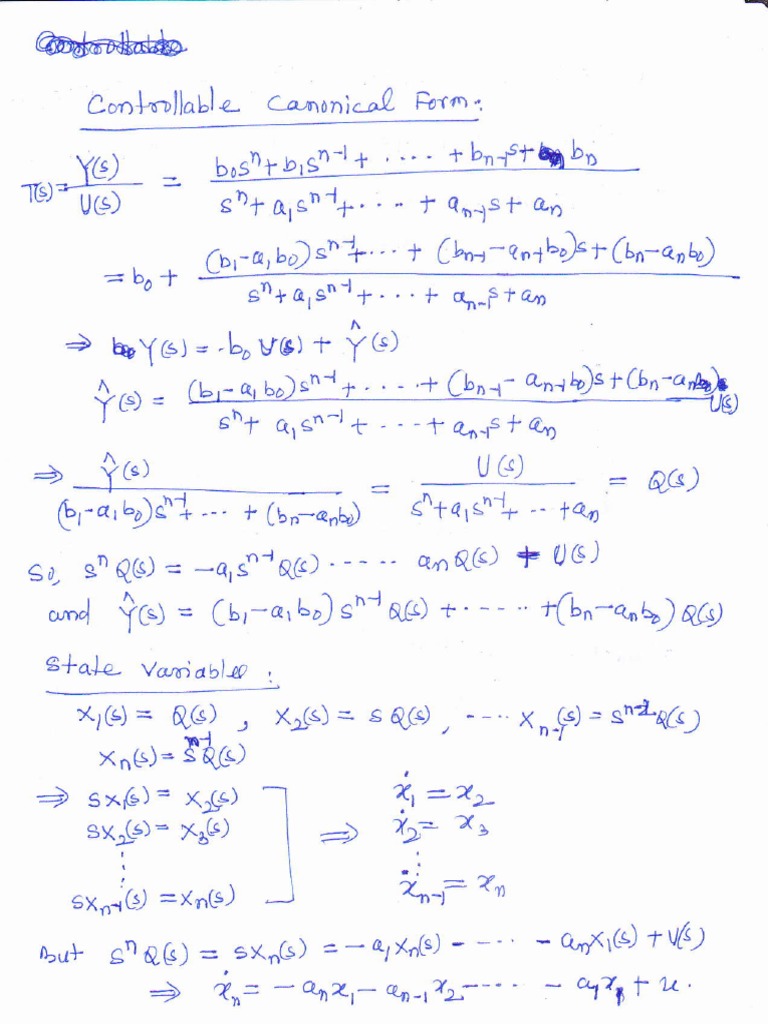 Controllable Canonical Form:
T(s) = Y(s)/U(s) = (b₀sⁿ + b₁sⁿ⁻¹ + .... + bₙ₋₁s + bₙ)/(sⁿ + a₁sⁿ⁻¹ + .... + aₙ₋₁s + aₙ)
= b₀ + ((b₁-a₁b₀)sⁿ⁻¹ + ... + (bₙ₋₁-aₙ₋₁b₀)s + (bₙ-aₙb₀))/(sⁿ + a₁sⁿ⁻¹ + ... + aₙ₋₁s + aₙ)
⇒ Y(s) = b₀ U(s) + Ŷ(s)
Ŷ(s) = ((b₁-a₁b₀)sⁿ⁻¹ + ..... + (bₙ₋₁-aₙ₋₁b₀)s + (bₙ-aₙb₀))/(sⁿ + a₁sⁿ⁻¹ + ... + aₙ₋₁s + aₙ) U(s)
⇒ Ŷ(s)/((b₁-a₁b₀)sⁿ⁻¹ + ... + (bₙ-aₙb₀)) = U(s)/(sⁿ + a₁sⁿ⁻¹ + ... + aₙ) = Q(s)
So, sⁿQ(s) = -a₁sⁿ⁻¹Q(s) ..... aₙQ(s) + U(s)
and Ŷ(s) = (b₁-a₁b₀)sⁿ⁻¹Q(s) + ..... + (bₙ-aₙb₀)Q(s)
State Variables:
X₁(s) = Q(s), X₂(s) = sQ(s), .... Xₙ₋₁(s) = sⁿ⁻²Q(s)
Xₙ(s) = sⁿ⁻¹Q(s)
⇒ sX₁(s) = X₂(s)
sX₂(s) = X₃(s)
⋮
sXₙ₋₁(s) = Xₙ(s)
⇒ ẋ₁ = x₂
ẋ₂ = x₃
⋮
ẋₙ₋₁ = xₙ
But sⁿQ(s) = sXₙ(s) = -a₁Xₙ(s) - .... - aₙX₁(s) + U(s)
⇒ ẋₙ = -aₙx₁ - aₙ₋₁x₂ .... - a₁xₙ + u.